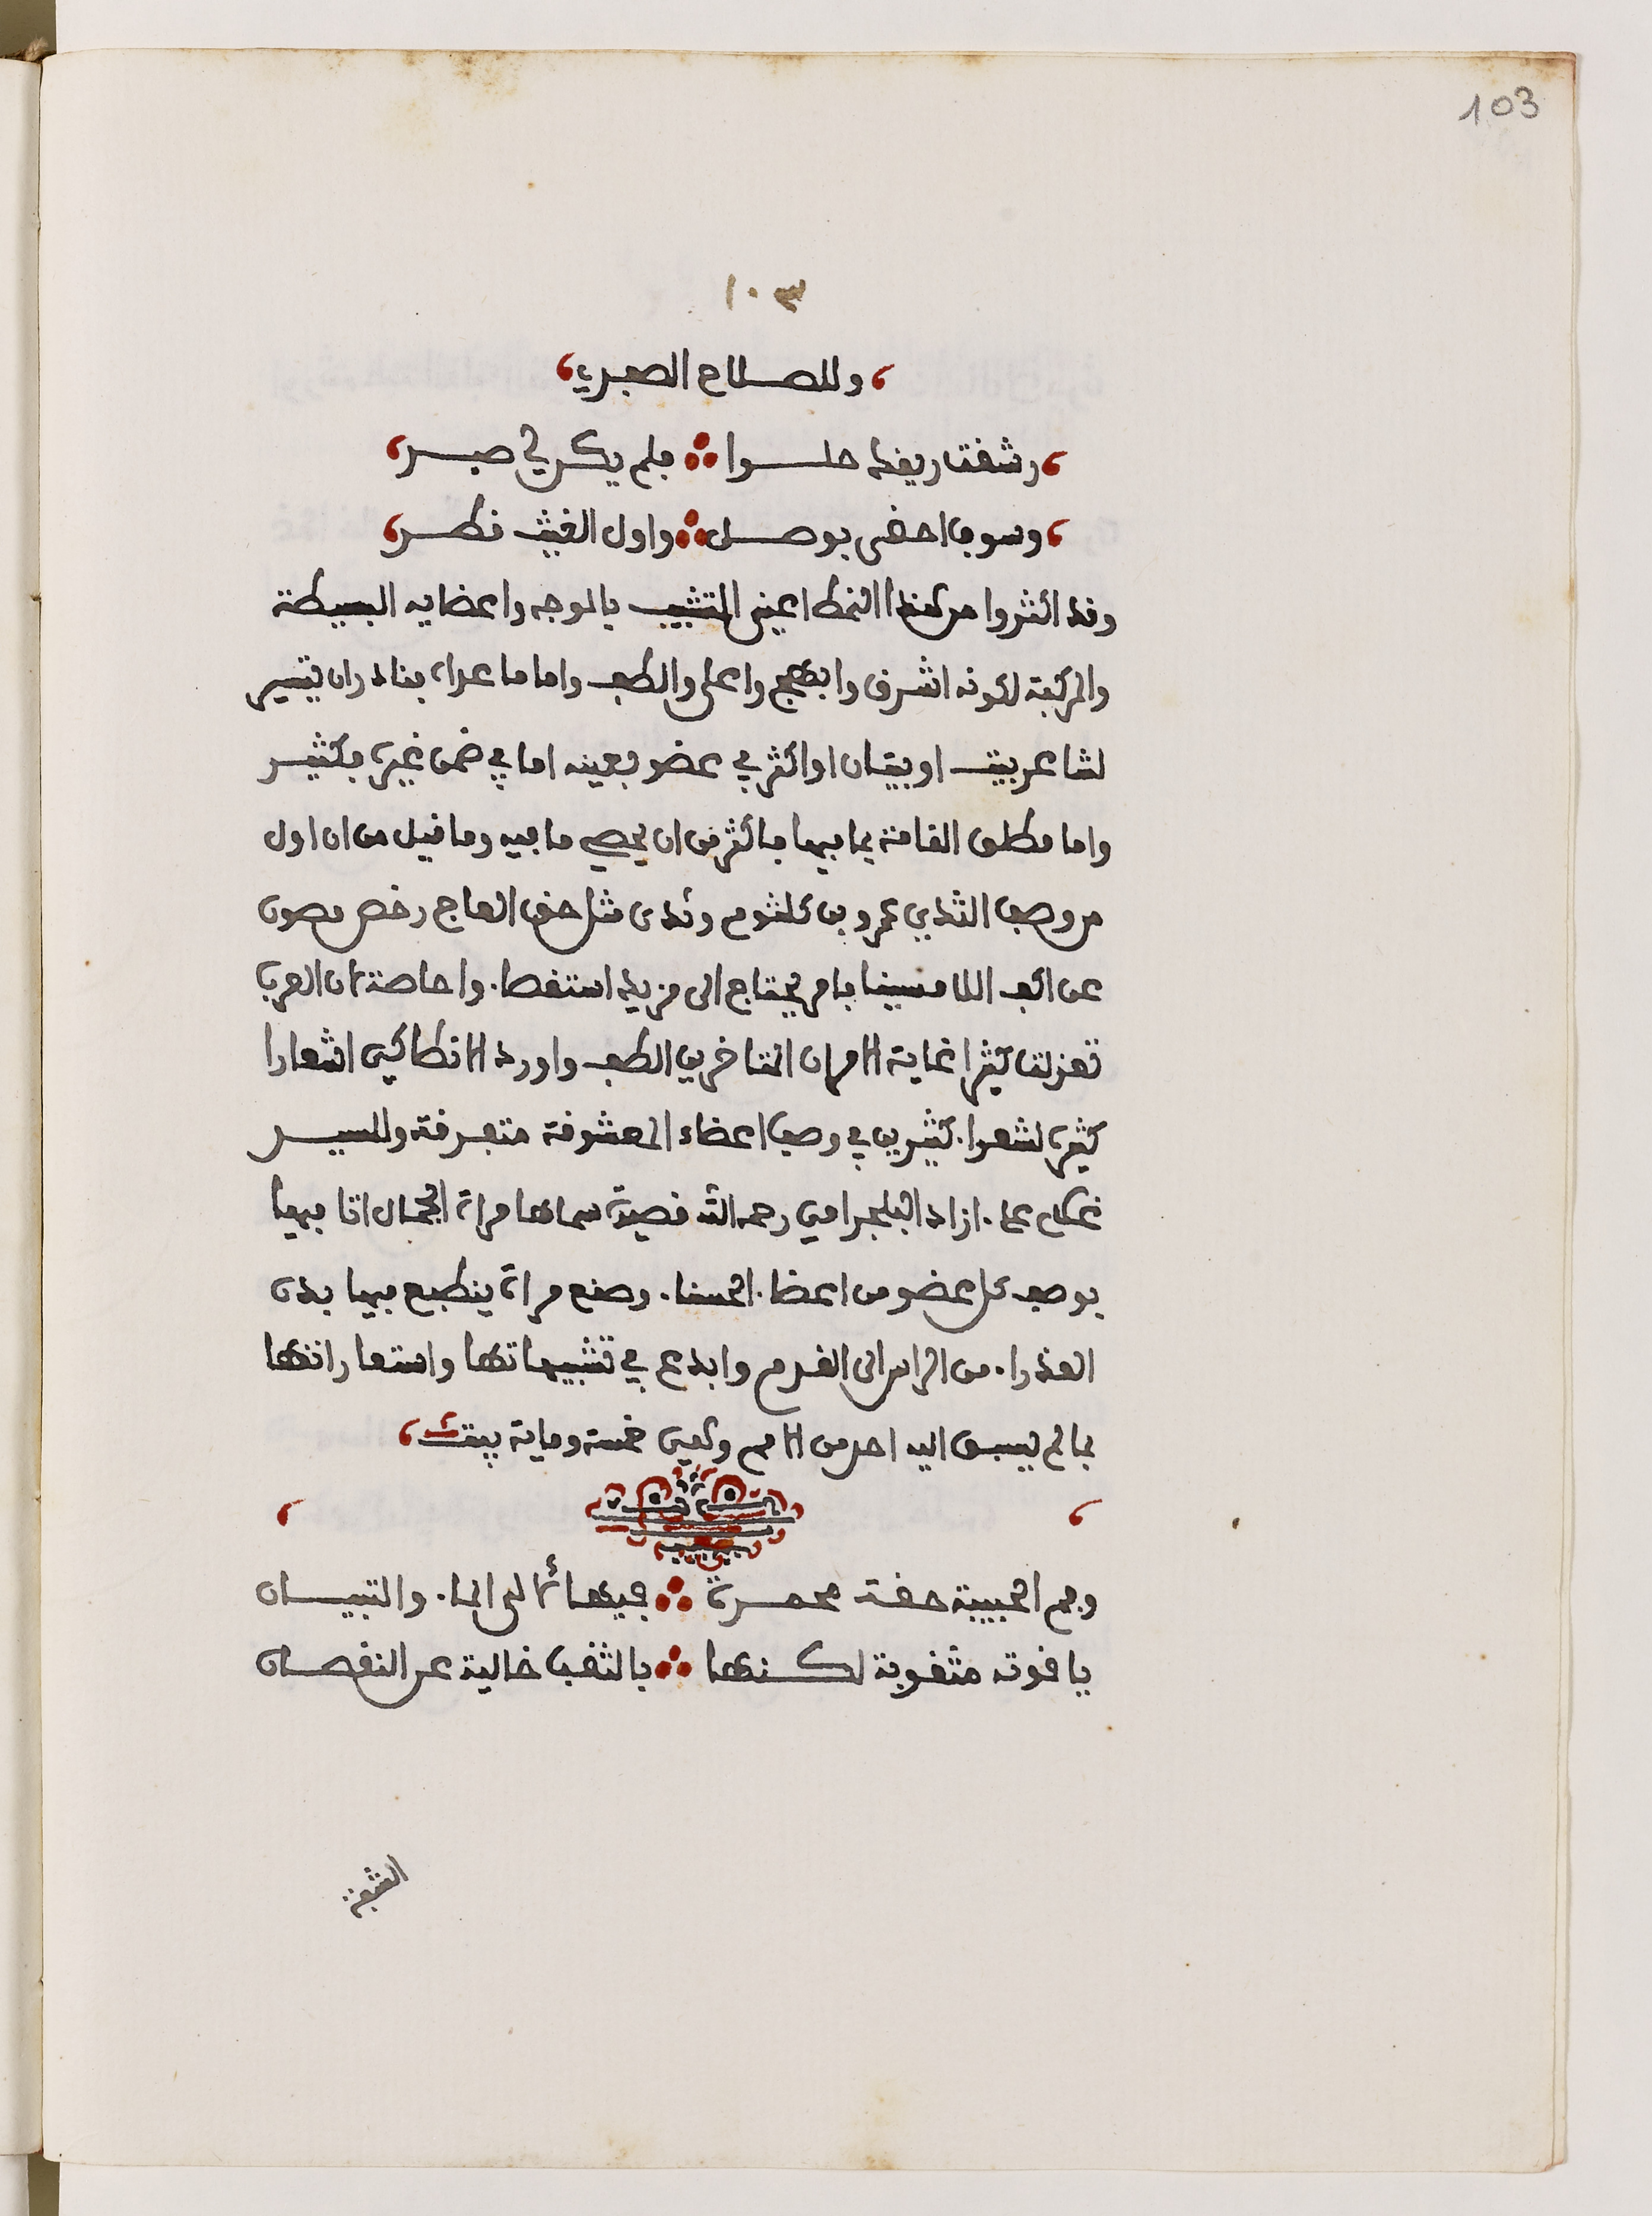 103
١٠٣
وللصلاح الصفدي
رشفت ريقه حلوا ∴ فلم يكن لي صبر
وسوف احضى بوصل ∴ واول الغيث قطر
وقد اكثروا من هذا النمط اعيني التشبيب بالوجه واعضايه البسيطة
والمركبة لكونه اشرف وابهج واعلى والطف واما ما عداه فنادر ان يتيسر
لشاعر بيت او بيتان او اكثر في عضو بعينه اما في ضمن غيره فكثير
واما مطلق القامة بما فيها فاكثر من ان يحصى ما فيه وما قيل من ان اول
من وصف الثدي عمرو بن كلثوم وثدى مثل حق العاج رخص مصون
عن اكف اللامسينا فامر يحتاج الى مزيد استقصاء واحاصة لان العرب
تغزلت كثيرا غاية الامر ان المتاخرين الطف واورد الانطاكي اشعارا
كثيرة لشعراء كثيرين في وصف اعضاء المعشوقة متفرقة وللسير
غلام علي ازاد البلجرامي رحمه الله قصيدة سماها مرءاة الجمال اتا فيها
بوصف كل عضو من اعضاء الحسناء وصنع مرءاة ينطبع فيها بدن
العذراء من الراس الى القدم وابدع في تشبيهاتها واستعاراتها
بما لم يسبق اليه احد من الامم وهي خمسة وماية بيت
وفم الحبيبة حقة محمرة ∴ فيها لئالى الماء والتبيان
ياقوته مثقوبة لكنها ∴ بالثقب خالية عن النقصان